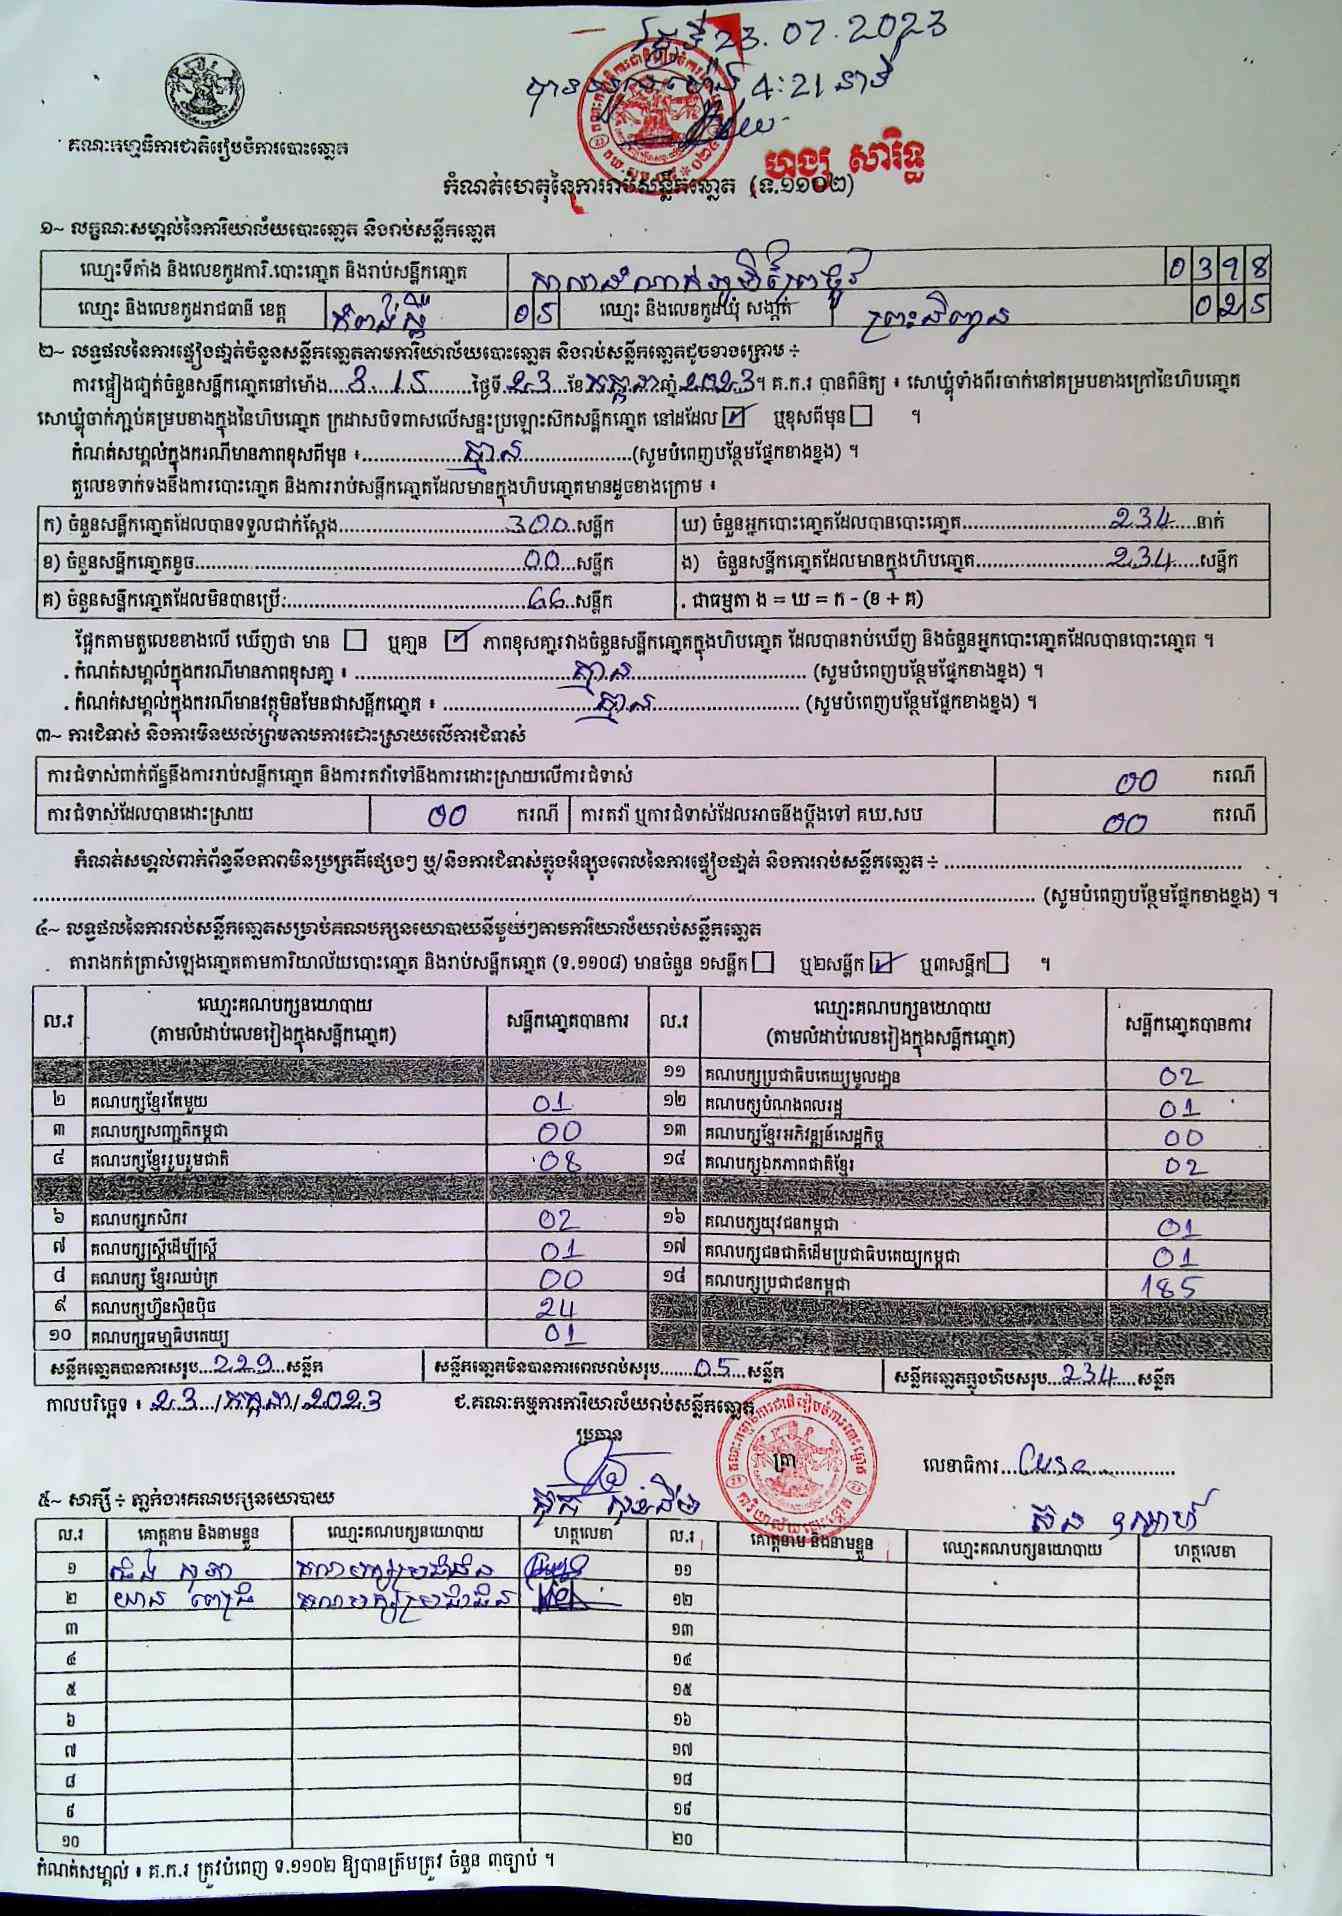 ថ្ងៃទី 23.07.2023
ម៉ោង 4:21 នាទី
គណៈកម្មាធិការជាតិរៀបចំការបោះឆ្នោត
ហង្ស សារិទ្ធ
កំណត់ហេតុនៃការរាប់សន្លឹកឆ្នោត (ទ.១១០២)
១~ លក្ខណៈសម្គាល់នៃការិយាល័យបោះឆ្នោត និងរាប់សន្លឹកឆ្នោត
ឈ្មោះទីតាំង និងលេខកូដការិ.បោះឆ្នោត និងរាប់សន្លឹកឆ្នោត 0398
ឈ្មោះ និងលេខកូដរាជធានី ខេត្ត កំពង់ស្ពឺ 05 ឈ្មោះ និងលេខកូដឃុំ សង្កាត់ ព្រះនិព្វាន 025
២~ លទ្ធផលនៃការផ្ទៀងផ្ទាត់ចំនួនសន្លឹកឆ្នោតតាមការិយាល័យបោះឆ្នោត និងរាប់សន្លឹកឆ្នោតដូចខាងក្រោម ÷
ការផ្ទៀងផ្ទាត់ចំនួនសន្លឹកឆ្នោតនៅម៉ោង 3 15 ថ្ងៃទី 23 ខែ កក្កដា ឆ្នាំ 2023។ គ.ក.រ បានពិនិត្យ ៖ សោឃ្លុំទាំងពីរចាក់នៅគម្របខាងក្រៅនៃហិបឆ្នោត
សោឃ្លុំចាក់ភ្ជាប់គម្របខាងក្នុងនៃហិបឆ្នោត ក្រដាសបិទពាសលើសន្ទះប្រឡោះស៊កសន្លឹកឆ្នោត នៅដដែល ☑ ឬខុសពីមុន ☐ ។
កំណត់សម្គាល់ក្នុងករណីមានភាពខុសពីមុន ៖ គ្មាន (សូមបំពេញបន្ថែមផ្នែកខាងខ្នង) ។
តួលេខទាក់ទងនឹងការបោះឆ្នោត និងការរាប់សន្លឹកឆ្នោតដែលមានក្នុងហិបឆ្នោតមានដូចខាងក្រោម ៖
ក) ចំនួនសន្លឹកឆ្នោតដែលបានទទួលជាក់ស្តែង 300 សន្លឹក ឃ) ចំនួនអ្នកបោះឆ្នោតដែលបានបោះឆ្នោត 234 នាក់
ខ) ចំនួនសន្លឹកឆ្នោតខូច 00 សន្លឹក ង) ចំនួនសន្លឹកឆ្នោតដែលមានក្នុងហិបឆ្នោត 234 សន្លឹក
គ) ចំនួនសន្លឹកឆ្នោតដែលមិនបានប្រើ 66 សន្លឹក . ជាធម្មតា ង = ឃ = ក - (ខ + គ)
ផ្អែកតាមតួលេខខាងលើ ឃើញថា មាន ☐ ឬគ្មាន ☑ ភាពខុសគ្នារវាងចំនួនសន្លឹកឆ្នោតក្នុងហិបឆ្នោត ដែលបានរាប់ឃើញ និងចំនួនអ្នកបោះឆ្នោតដែលបានបោះឆ្នោត ។
. កំណត់សម្គាល់ក្នុងករណីមានភាពខុសគ្នា ៖ គ្មាន (សូមបំពេញបន្ថែមផ្នែកខាងខ្នង) ។
. កំណត់សម្គាល់ក្នុងករណីមានវត្ថុមិនមែនជាសន្លឹកឆ្នោត ៖ គ្មាន (សូមបំពេញបន្ថែមផ្នែកខាងខ្នង) ។
៣~ ការជំទាស់ និងការមិនយល់ព្រមតាមការដោះស្រាយលើការជំទាស់
ការជំទាស់ពាក់ព័ន្ធនឹងការរាប់សន្លឹកឆ្នោត និងការតវ៉ាទៅនឹងការដោះស្រាយលើការជំទាស់ 00 ករណី
ការជំទាស់ដែលបានដោះស្រាយ 00 ករណី ការតវ៉ា ឬការជំទាស់ដែលអាចនឹងប្តឹងទៅ គឃ.សប 00 ករណី
កំណត់សម្គាល់ពាក់ព័ន្ធនឹងភាពមិនប្រក្រតីផ្សេងៗ ឬ/និងការជំទាស់ក្នុងអំឡុងពេលនៃការផ្ទៀងផ្ទាត់ និងការរាប់សន្លឹកឆ្នោត ÷
(សូមបំពេញបន្ថែមផ្នែកខាងខ្នង) ។
៤~ លទ្ធផលនៃការរាប់សន្លឹកឆ្នោតសម្រាប់គណបក្សនយោបាយនីមួយៗតាមការិយាល័យរាប់សន្លឹកឆ្នោត
តារាងកត់ត្រាសំឡេងឆ្នោតតាមការិយាល័យបោះឆ្នោត និងរាប់សន្លឹកឆ្នោត (ទ.១១០៨) មានចំនួន ១សន្លឹក ☐ ឬ២សន្លឹក ☑ ឬ៣សន្លឹក ☐ ។
ល.រ ឈ្មោះគណបក្សនយោបាយ (តាមលំដាប់លេខរៀងក្នុងសន្លឹកឆ្នោត) សន្លឹកឆ្នោតបានការ ល.រ ឈ្មោះគណបក្សនយោបាយ (តាមលំដាប់លេខរៀងក្នុងសន្លឹកឆ្នោត) សន្លឹកឆ្នោតបានការ
១១ គណបក្សប្រជាធិបតេយ្យមូលដ្ឋាន 02
២ គណបក្សខ្មែរតែមួយ 01 ១២ គណបក្សបំណងពលរដ្ឋ 01
៣ គណបក្សសញ្ជាតិកម្ពុជា 00 ១៣ គណបក្សខ្មែរអភិវឌ្ឍន៍សេដ្ឋកិច្ច 00
៤ គណបក្សខ្មែររួបរួមជាតិ 08 ១៤ គណបក្សឯកភាពជាតិខ្មែរ 02
៦ គណបក្សកសិករ 02 ១៦ គណបក្សយុវជនកម្ពុជា 01
៧ គណបក្សស្ត្រីដើម្បីស្ត្រី 01 ១៧ គណបក្សជនជាតិដើមប្រជាធិបតេយ្យកម្ពុជា 01
៨ គណបក្ស ខ្មែរឈប់ក្រ 00 ១៨ គណបក្សប្រជាជនកម្ពុជា 185
៩ គណបក្សហ្វ៊ុនស៊ិនប៉ិច 24
១០ គណបក្សធម្មាធិបតេយ្យ 01
សន្លឹកឆ្នោតបានការសរុប 229 សន្លឹក សន្លឹកឆ្នោតមិនបានការពេលរាប់សរុប 05 សន្លឹក សន្លឹកឆ្នោតក្នុងហិបសរុប 234 សន្លឹក
កាលបរិច្ឆេទ ៖ 23 / កក្កដា / 2023 ជ.គណៈកម្មការការិយាល័យរាប់សន្លឹកឆ្នោត
ប្រធាន
ត្រា
លេខាធិការ
៥~ សាក្សី ÷ ភ្នាក់ងារគណបក្សនយោបាយ
ល.រ គោត្តនាម និងនាមខ្លួន ឈ្មោះគណបក្សនយោបាយ ហត្ថលេខា ល.រ គោត្តនាម និងនាមខ្លួន ឈ្មោះគណបក្សនយោបាយ ហត្ថលេខា
១ គណបក្សប្រជាជន ១១
២ គណបក្សប្រជាជន ១២
៣ ១៣
៤ ១៤
៥ ១៥
៦ ១៦
៧ ១៧
៨ ១៨
៩ ១៩
១០ ២០
កំណត់សម្គាល់ ៖ គ.ក.រ ត្រូវបំពេញ ទ.១១០២ ឱ្យបានត្រឹមត្រូវ ចំនួន ៣ច្បាប់ ។